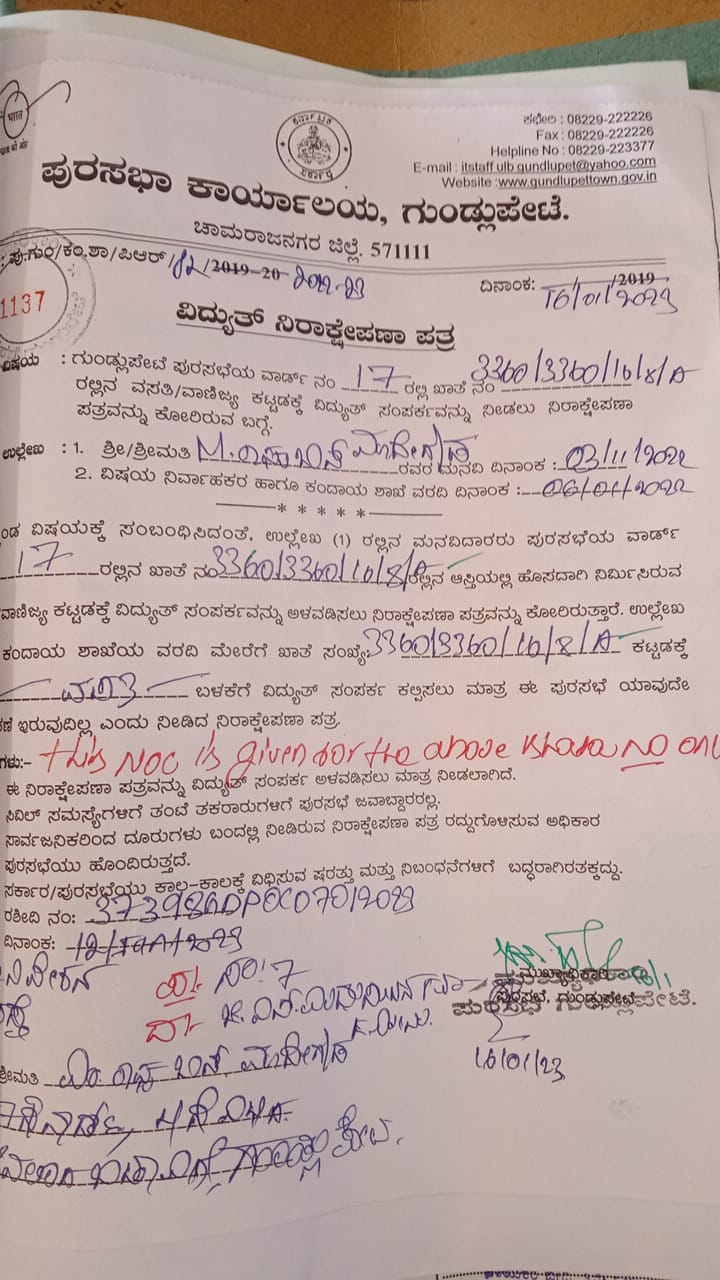 ಕಛೇರಿ : 08229-222226
Fax : 08229-222226
Helpline No : 08229-223377
E-mail : itstaff ulb gundlupet@yahoo.com
Website : www.gundlupettown.gov.in
ಪುರಸಭಾ ಕಾರ್ಯಾಲಯ, ಗುಂಡ್ಲುಪೇಟೆ.
ಚಾಮರಾಜನಗರ ಜಿಲ್ಲೆ. 571111
ಪು.ಗುಂ/ಕಂ.ಶಾ/ಪಿಆರ್/82/2019-20 2022-23
ದಿನಾಂಕ: /2019 16/01/2023
1137
ವಿದ್ಯುತ್ ನಿರಾಕ್ಷೇಪಣಾ ಪತ್ರ
ವಿಷಯ : ಗುಂಡ್ಲುಪೇಟೆ ಪುರಸಭೆಯ ವಾರ್ಡ್ ನಂ 17 ರಲ್ಲಿ ಖಾತೆ ನಂ 3360/3360/10/8/A
ರಲ್ಲಿನ ವಸತಿ/ವಾಣಿಜ್ಯ ಕಟ್ಟಡಕ್ಕೆ ವಿದ್ಯುತ್ ಸಂಪರ್ಕವನ್ನು ನೀಡಲು ನಿರಾಕ್ಷೇಪಣಾ
ಪತ್ರವನ್ನು ಕೋರಿರುವ ಬಗ್ಗೆ.
ಉಲ್ಲೇಖ : 1. ಶ್ರೀ/ಶ್ರೀಮತಿ ರವರ ಮನವಿ ದಿನಾಂಕ : 03/11/2022
2. ವಿಷಯ ನಿರ್ವಾಹಕರ ಹಾಗೂ ಕಂದಾಯ ಶಾಖೆ ವರದಿ ದಿನಾಂಕ :
* * * * *
ಂಡ ವಿಷಯಕ್ಕೆ ಸಂಬಂಧಿಸಿದಂತೆ, ಉಲ್ಲೇಖ (1) ರಲ್ಲಿನ ಮನವಿದಾರರು ಪುರಸಭೆಯ ವಾರ್ಡ್
17 ರಲ್ಲಿನ ಖಾತೆ ನಂ 3360/3360/10/8/A ರಲ್ಲಿನ ಆಸ್ತಿಯಲ್ಲಿ ಹೊಸದಾಗಿ ನಿರ್ಮಿಸಿರುವ
ವಾಣಿಜ್ಯ ಕಟ್ಟಡಕ್ಕೆ ವಿದ್ಯುತ್ ಸಂಪರ್ಕವನ್ನು ಅಳವಡಿಸಲು ನಿರಾಕ್ಷೇಪಣಾ ಪತ್ರವನ್ನು ಕೋರಿರುತ್ತಾರೆ. ಉಲ್ಲೇಖ
ಕಂದಾಯ ಶಾಖೆಯ ವರದಿ ಮೇರೆಗೆ ಖಾತೆ ಸಂಖ್ಯೆ: 3360/3360/10/8/A ಕಟ್ಟಡಕ್ಕೆ
ವಸತಿ ಬಳಕೆಗೆ ವಿದ್ಯುತ್ ಸಂಪರ್ಕ ಕಲ್ಪಿಸಲು ಮಾತ್ರ ಈ ಪುರಸಭೆ ಯಾವುದೇ
ಣೆ ಇರುವುದಿಲ್ಲ ಎಂದು ನೀಡಿದ ನಿರಾಕ್ಷೇಪಣಾ ಪತ್ರ.
ಗಳು:- This NOC is given for the above khata NO onl
ಈ ನಿರಾಕ್ಷೇಪಣಾ ಪತ್ರವನ್ನು ವಿದ್ಯುತ್ ಸಂಪರ್ಕ ಅಳವಡಿಸಲು ಮಾತ್ರ ನೀಡಲಾಗಿದೆ.
ಸಿವಿಲ್ ಸಮಸ್ಯೆಗಳಿಗೆ ತಂಟೆ ತಕರಾರುಗಳಿಗೆ ಪುರಸಭೆ ಜವಾಬ್ದಾರರಲ್ಲ.
ಸಾರ್ವಜನಿಕರಿಂದ ದೂರುಗಳು ಬಂದಲ್ಲಿ ನೀಡಿರುವ ನಿರಾಕ್ಷೇಪಣಾ ಪತ್ರ ರದ್ದುಗೊಳಿಸುವ ಅಧಿಕಾರ
ಪುರಸಭೆಯು ಹೊಂದಿರುತ್ತದೆ.
ಸರ್ಕಾರ/ಪುರಸಭೆಯು ಕಾಲ-ಕಾಲಕ್ಕೆ ವಿಧಿಸುವ ಷರತ್ತು ಮತ್ತು ನಿಬಂಧನೆಗಳಿಗೆ ಬದ್ಧರಾಗಿರತಕ್ಕದ್ದು.
ರಶೀದಿ ನಂ:
ದಿನಾಂಕ: 12/JAN/2023
NO: 7
ಮುಖ್ಯಾಧಿಕಾರಿ
ಪುರಸಭೆ, ಗುಂಡ್ಲುಪೇಟೆ.
16/01/23
ಶ್ರೀಮತಿ